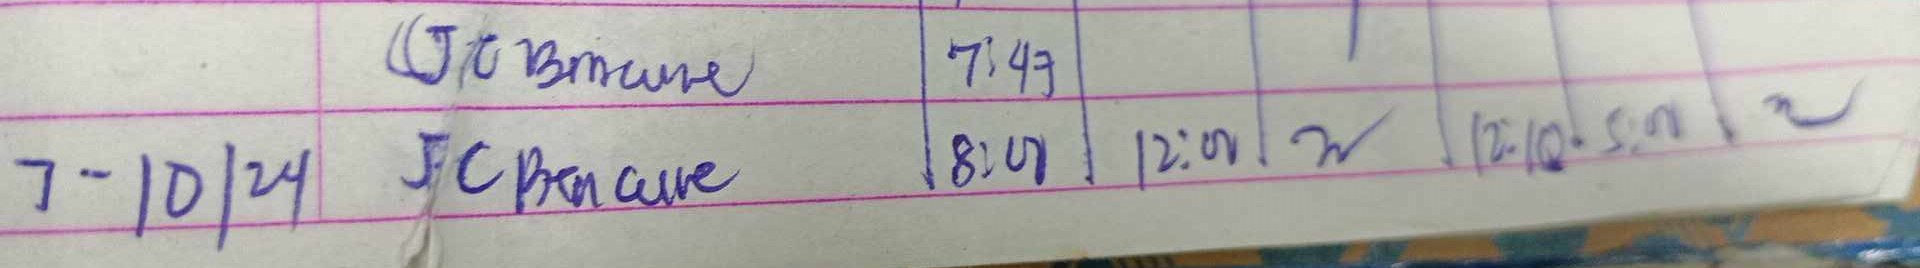 JC Bencuve 7:47
7-10/24 JC Bencuve 8:00 12:00 12:10 5:00